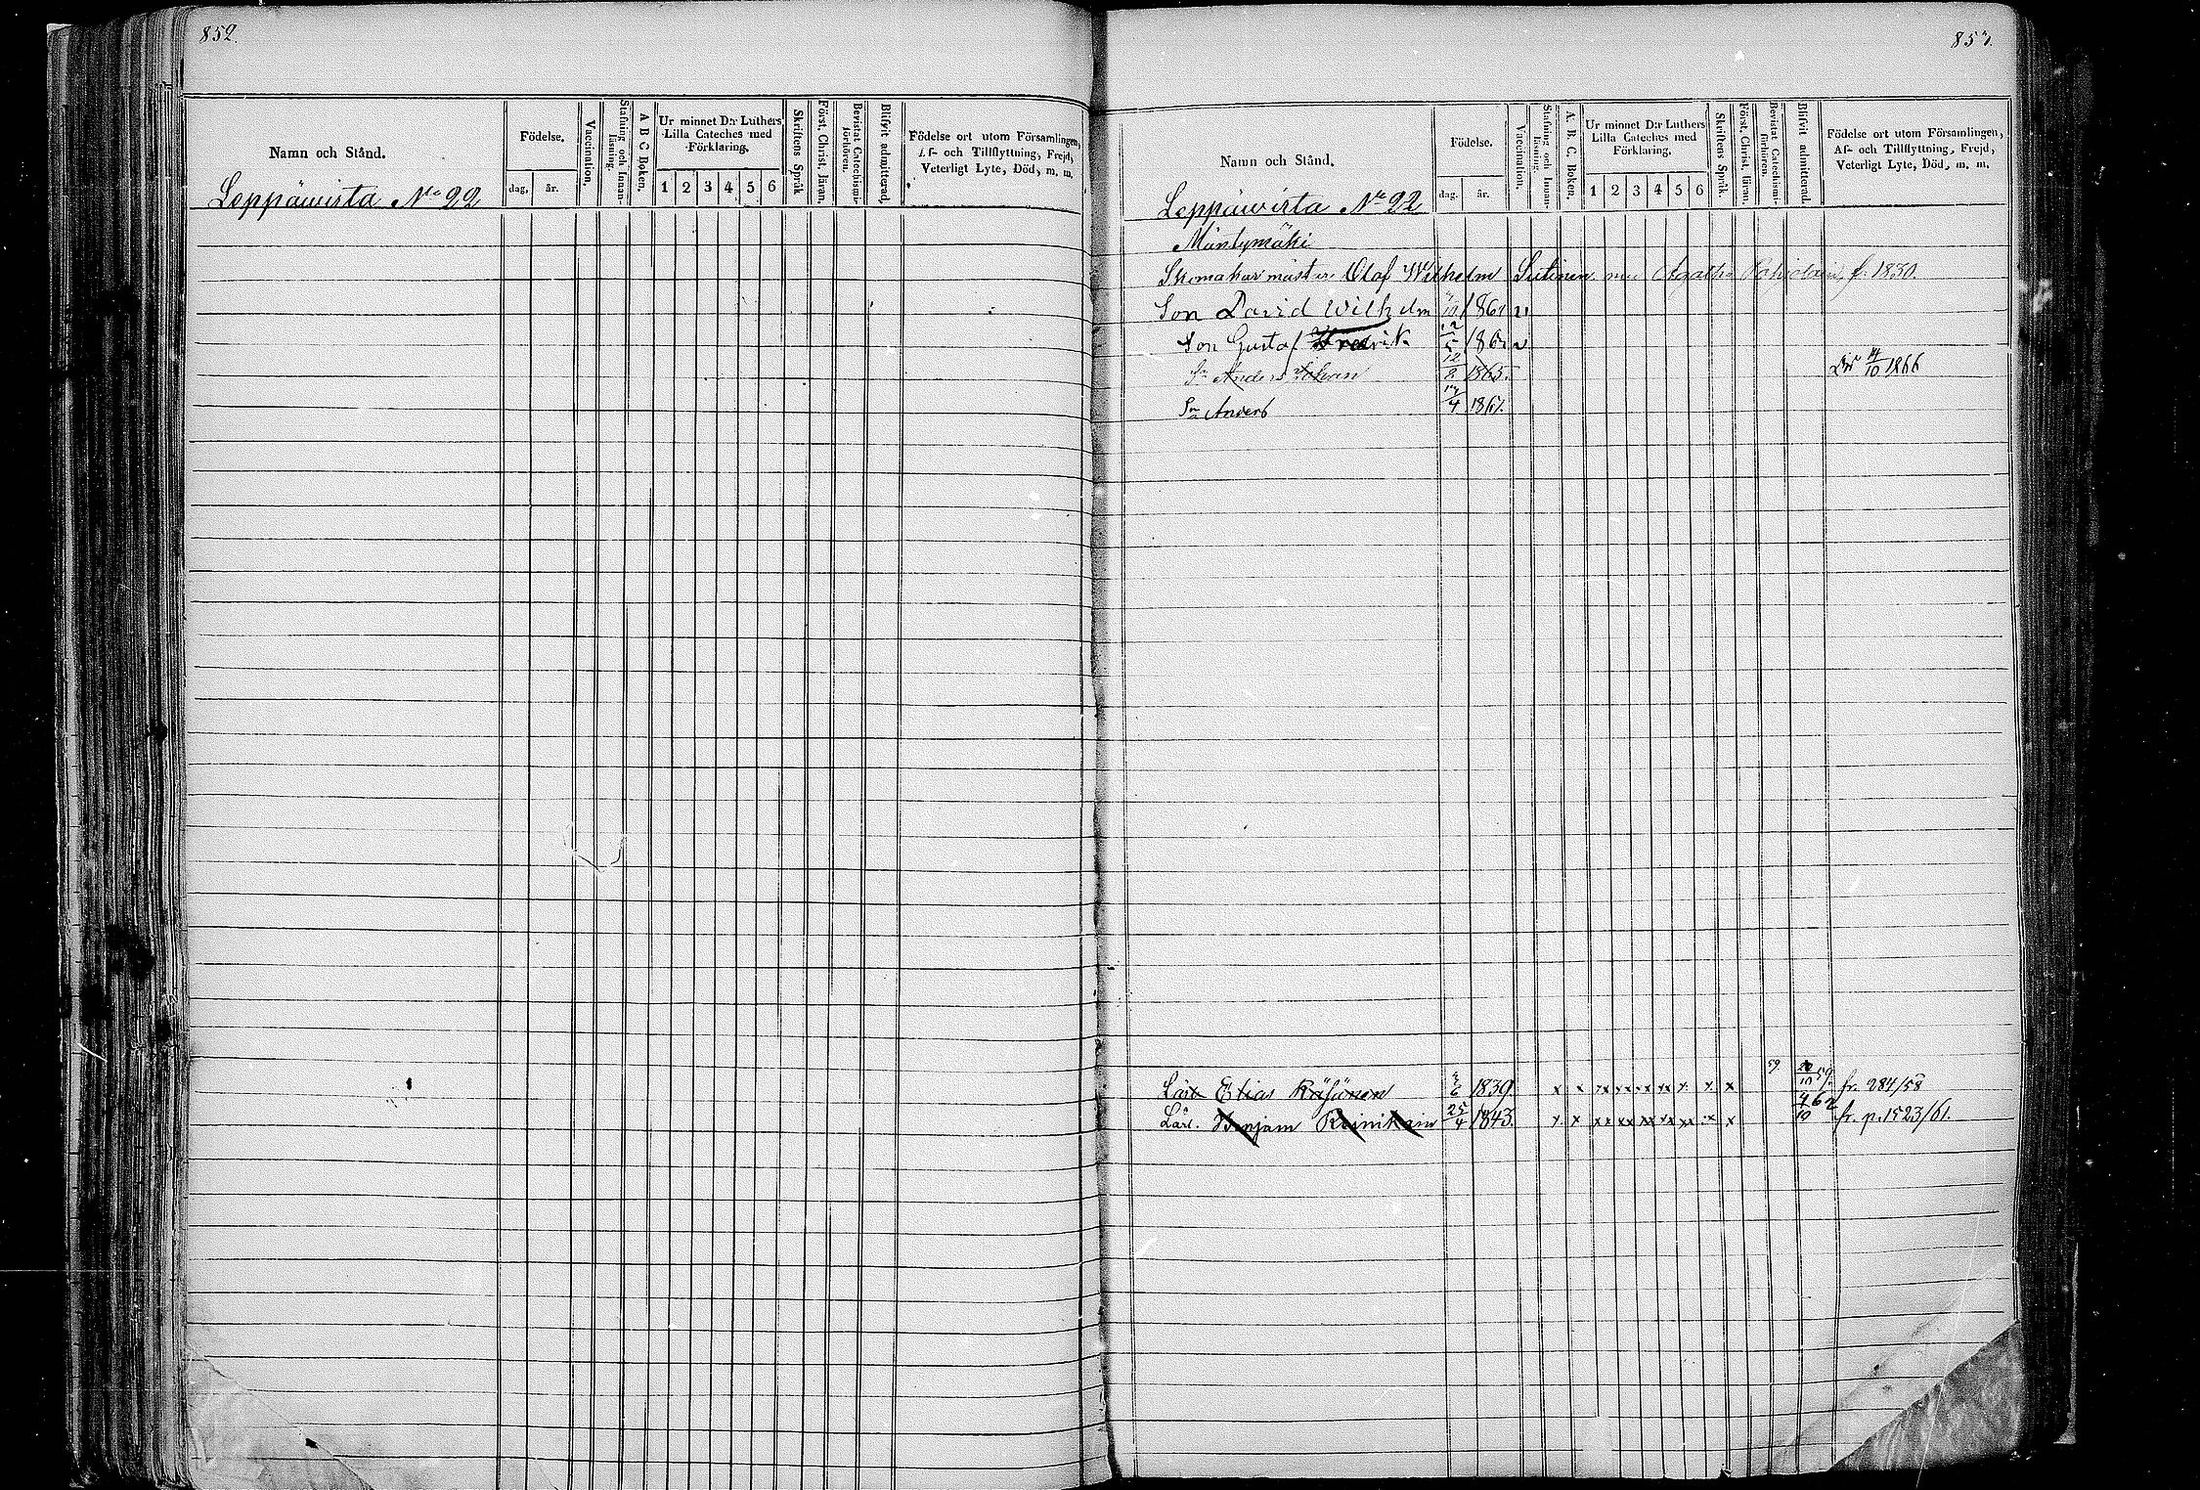 852.
Namn och Stånd.
Födelse.
dag, år.
Vaccination.
Stafning och Innan-läsning.
A B C Boken.
Ur minnet D:r Luthers Lilla Cateches med Förklaring.
1 2 3 4 5 6
Skriftens Språk
Först. Christ. läran.
Bevistat Catechismi-förhören.
Blifvit admitterad.
Födelse ort utom Församlingen,
Af- och Tillflyttning, Frejd,
Veterligt Lyte, Död, m. m.
Leppäwirta No 22
853.
Namn och Stånd.
Födelse.
dag. år.
Vaccination.
Stafning och Innan-läsning.
A. B. C. Boken.
Ur minnet D:r Luthers Lilla Cateches med Förklaring.
1 2 3 4 5 6
Skriftens Språk
Först. Christ. läran.
Bevistat Catechismi-förhören.
Blifvit admitterad.
Födelse ort utom Församlingen,
Af- och Tillflyttning, Frejd,
Veterligt Lyte, Död, m. m.
Leppäwirta No 22
Mäntymäki
Skomakar mästar. Olof Wilhelm Sutinen Agatha f. 1830.
Son David Wilhelm
Son Gustaf Fredrik
Sn Anders Johan 12/2 1865. 14/10 1866
Sn Anders 4 1867.
Lärl Elias Räsänen 6 1839. x x xx xx xx xx x x x 59 10 59. fr. 284/58
Lärl. Benjam Reinikain 25/4 1843. x x xx xx xx xx xx x x 4/10 62 fr. p. 1523/61.